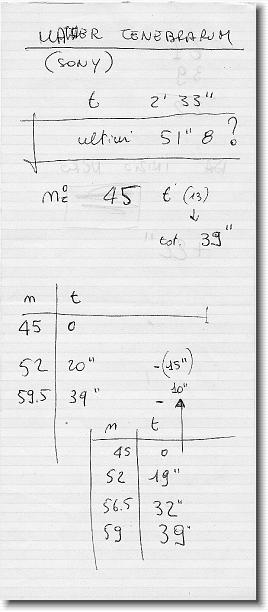 MATER TENEBRARUM
(SONY)
t 2' 33"
ultimi 51" 8 ?
45 t (13)
↓
tot. 39"
m t
45 0
52 20" -(15")
59.5 39" - 10"
m t
45 0
52 19"
56.5 32"
59 39"